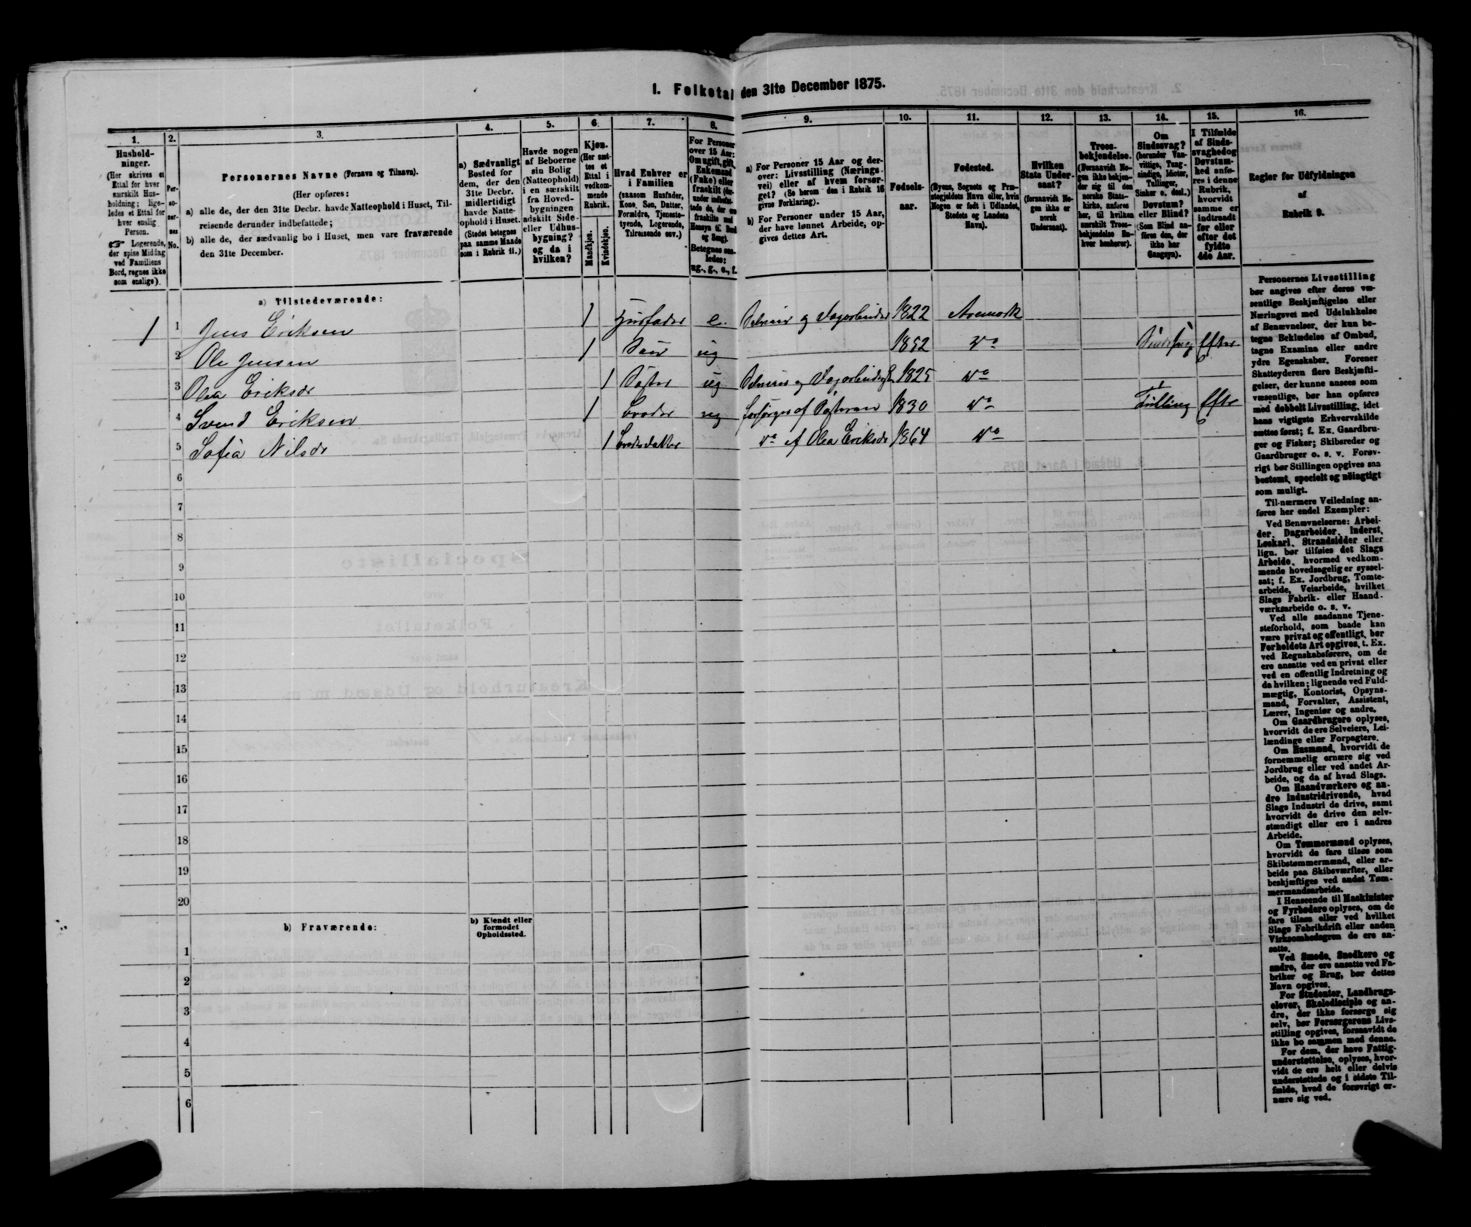 1. Folketal den 31te December 1875.
1.
Hushold-
ninger.
(Her skrives et
Ettal for hver
særskilt Hus-
holdning; lige-
ledes et Ettal for
hver enslig
Person.
Logerende,
der spise Middag
ved Familiens
Bord, regnes ikke
som enslige).
2.
Per-
so-
ner-
nes
No.
3.
Personernes Navne (Fornavn og Tilnavn).
(Her opføres:
a) alle de, der den 31te Decbr. havde Natteophold i Huset, Til-
reisende derunder indbefattede;
b) alle de, der sædvanlig bo i Huset, men vare fraværende
den 31te December.
4.
a) Sædvanligt
Bosted for
dem, der den
31te Decbr.
midlertidigt
havde Natte-
ophold i Huset.
(Stedet betegnes
paa samme Maade
som i Rubrik 11.)
5.
Havde nogen
af Beboerne
sin Bolig
(Natteophold)
i en særskilt
fra Hoved-
bygningen
adskilt Side-
eller Udhus-
bygning?
og da i
hvilken?
6.
Kjøn.
(Her sæt-
tes et
Ettal i
vedkom-
mende
Rubrik.
Mandkjøn.
Kvindekjøn.
7.
Hvad Enhver er
i Familien
(saasom Husfader,
Kone, Søn, Datter,
Forældre, Tjeneste-
tyende, Logerende,
Tilreisende osv.)
8.
For Personer
over 15 Aar:
Om ugift, gift,
Enkemand
(Enke) eller
fraskilt
Betegnes saa-
ledes:
ug., g., e., f.
9.
a) For Personer 15 Aar og der-
over: Livsstilling (Nærings-
vei) eller af hvem forsør-
get? (Se herom den i Rubrik 16
givne Forklaring).
b) For Personer under 15 Aar,
der have lønnet Arbeide, op-
gives dettes Art.
10.
Fødsels-
aar.
11.
Fødested.
(Byens, Sognets og Præ-
stegjeldets Navn eller, hvis
Nogen er født i Udlandet,
Stedets og Landets
Navn).
12.
Hvilken
Stats Under-
saat?
(forsaavidt No-
gen ikke er
norsk
Undersaat).
13.
Troes-
bekjendelse.
(Forsaavidt No-
gen ikke beken-
der sig til den
norske Stats-
kirke, anføres
her, til hvilken
særskilt Troes-
bekjendelse En-
hver henhører).
14.
Om
Sindssvag?
(herunder Van-
vittige, Tung-
sindige, Idioter,
Tullinger,
Sinker o. desl.)
Døvstum?
eller Blind?
(Som Blind an-
føres den, der
ikke har
Gangsyn).
15.
I Tilfælde
af Sinds-
svaghed og
Døvstum-
hed anfø-
res i denne
Rubrik,
hvorvidt
samme er
indtraadt
før eller
efter det
fyldte
4de Aar.
16.
Regler for Udfyldningen
af
Rubrik 9.
a) Tilstedeværende:
1 1 Jens Eriksen 1 Husfader e. Selveier og Dagarbeider 1822 Aremark
2 Ole Jensen 1 Søn ug 1852 do Sindssvag Efter
3 Olea Eriksdr 1 Søster ug Selveier og 1825 do
4 Svend Eriksen 1 broder ug forsørges af Søsteren 1830 do Tulling Efter
5 Sofia Nilsdr 1 broderdatter do af Olea Eriksdr 1864 do
6
7
8
9
10
11
12
13
14
15
16
17
18
19
20
b) Fraværende:
b) Kjendt eller
formodet
Opholdssted.
1
2
3
4
5
6
Personernes Livsstilling
bør angives efter deres væ-
sentlige Beskjæftigelse eller
Næringsvei med Udelukkelse
af Benævnelser, der kun be-
tegne Bekledelse af Ombud,
tagne Examina eller andre
ydre Egenskaber. Forener
Skatteyderen flere Beskjæfti-
gelser, der kunne ansees som
væsentlige, bør han opføres
med dobbelt Livsstilling, idet
hans vigtigste Erhvervskilde
sættes først; f. Ex. Gaardbru-
ger og Fisker; Skibsreder og
Gaardbruger o. s. v. Forøv-
rigt bør Stillingen opgives saa
bestemt, specielt og nöiagtigt
som muligt.
Til nærmere Veiledning an-
føres her endel Exempler:
Ved Benævnelserne: Arbei-
der, Dagarbeider, Inderst,
Løskarl, Strandsidder eller
lign. bør tilføies det Slags
Arbeide, hvormed vedkom-
mende hovedsagelig er syssel-
sat; f. Ex. Jordbrug, Tomte-
arbeide, Veiarbeide, hvilket
Slags Fabrik- eller Haand-
værksarbeide o. s. v.
Ved alle saadanne Tjene-
steforhold, som baade kan
være privat og offentligt, bør
Forholdets Art opgives, f. Ex.
ved Regnskabsførere, om de
ere ansatte ved en privat eller
ved en offentlig Indretning og
da hvilken; lignende ved Fuld-
mægtig, Kontorist, Opsyns-
mand, Forvalter, Assistent,
Lærer, Ingeniør og andre.
Om Gaardbrugere oplyses,
hvorvidt de ere Selveiere, Lei-
lændinge eller Forpagtere.
Om Husmænd, hvorvidt de
fornemmelig ernære sig ved
Jordbrug eller ved andet Ar-
beide, og da af hvad Slags.
Om Haandværkere og an-
dre Industridrivende, hvad
Slags Industri de drive, samt
hvorvidt de drive den selv-
stændigt eller ere i andres
Arbeide.
Om Tømmermænd oplyses,
hvorvidt de fare tilsøs som
Skibstømmermænd, eller ar-
beide paa Skibsværfter, eller
beskjæftiges ved andet Tøm-
mermandsarbeide.
I Henseende til Maskinister
og Fyrbødere oplyses, om de
fare tilsøs eller ved hvilket
Slags Fabrikdrift eller anden
Virksomhedsgren de ere an-
satte.
Ved Smede, Snedkere og
andre, der ere ansatte ved Fa-
briker og Brug, bør dettes
Navn opgives.
For Studenter, Landbrugs-
elever, Skoledisciple og an-
dre, der ikke forsørge sig
selv, bør Forsørgerens Livs-
stilling opgives, forsaavidt de
ikke bo sammen med denne.
For dem, der have Fattig-
understøttelse, oplyses, hvor-
vidt de ere helt eller delvis
understøttede og i sidste Til-
fælde, hvad de forøvrigt er-
nære sig ved.